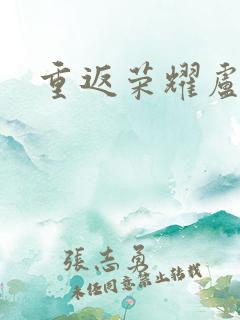 重返荣耀盧
張志勇
未经同意禁止转载